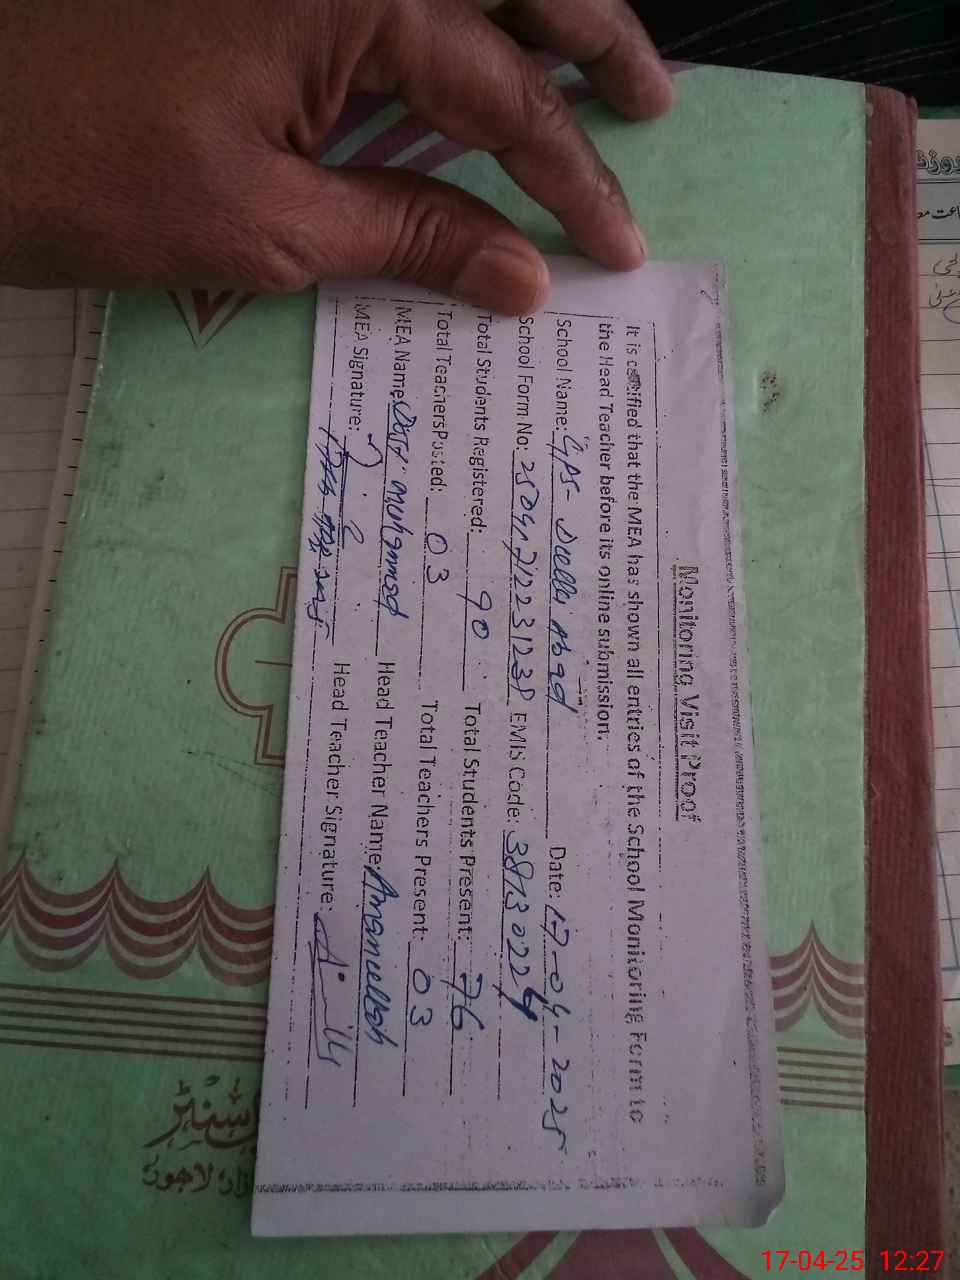 Monitoring Visit Proof
It is certified that the MEA has shown all entries of the School Monitoring Form to
the Head Teacher before its online submission.
School Name: GPS- Abad Date: 17-04-2025
School Form No: EMIS Code: 38130224
Total Students Registered: 90 Total Students Present: 76
Total Teachers Posted: 03 Total Teachers Present: 03
MEA Name: Dost Muhammad Head Teacher Name: Amanullah
MEA Signature: Head Teacher Signature:
لاہور
17-04-25 12:27